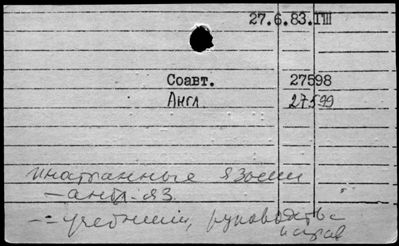 27.6.83.ГШ
Соавт. 27598
Англ 27599
иностранные языки
— англ. яз.
— учебники, руководства